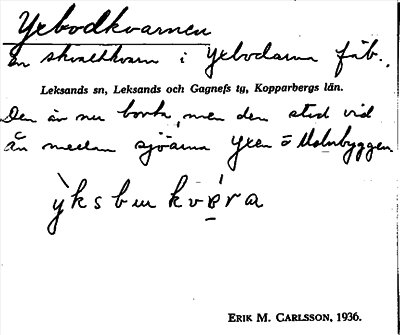 Yxbodkvarnen
en skvaltkvarn i Yxbodarna fäb.,
Leksands sn, Leksands och Gagnefs tg, Kopparbergs län.
Den är nu borta, men den stod vid
ån mellan sjöarna Yxen o Molnbyggen
ỳksbu kvæ̀ra
ERIK M. CARLSSON, 1936.